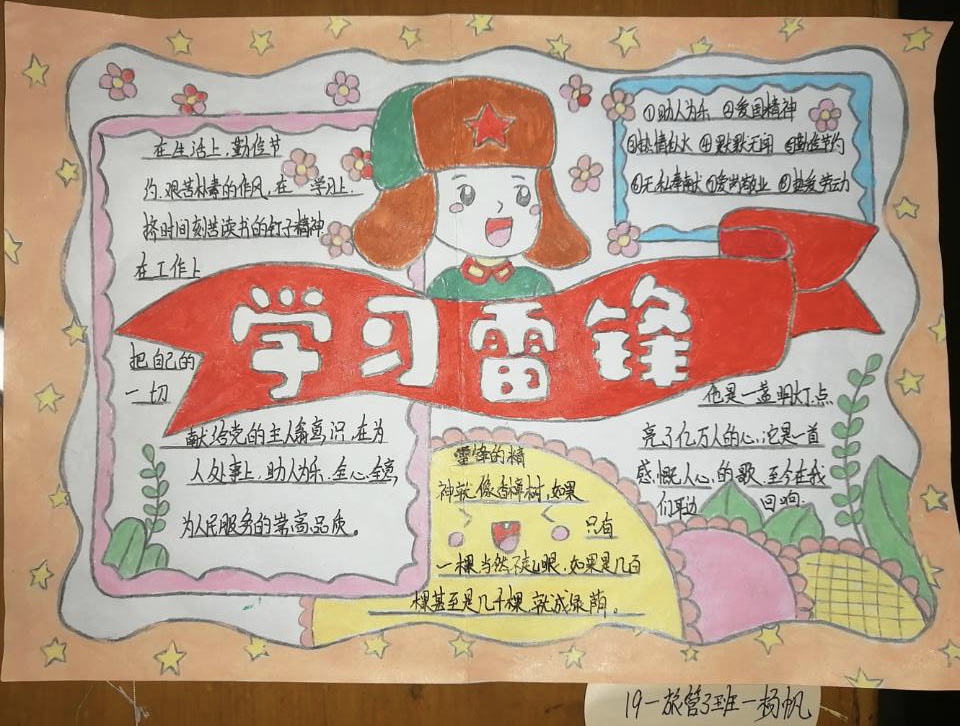 在生活上,勤俭节
约.艰苦朴素的作风,在 学习上.
挤时间刻苦读书的钉子精神
在工作上
把自己的
一切
献给党的主人翁意识,在为
人处事上,助人为乐.全心全意
为人民服务的崇高品质。
①助人为乐 ②爱国精神
③热情似火 ④默默无闻 ⑤勤俭节约
⑥无私奉献 ⑦爱岗敬业 ⑧热爱劳动
学习雷锋
雷锋的精
神就像香樟树,如果
只有
一棵当然不起眼.如果是几百
棵甚至是几千棵.就成绿荫。
他是一盏明灯.点
亮了亿万人的心,它是一首
感慨人心的歌.至今在我
们耳边 回响.
19一旅管3班一杨帆